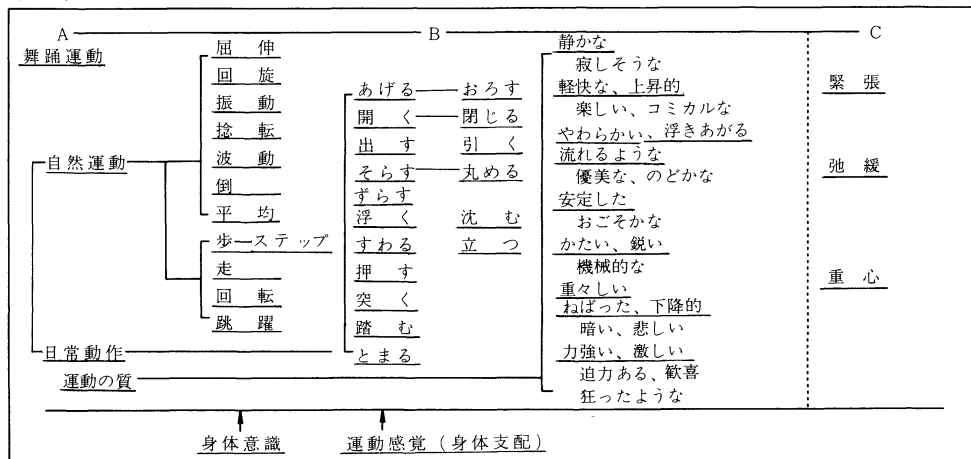 A B C
舞踊運動
自然運動
屈伸
回旋
振動
捻転
波動
倒
平均
歩―ステップ
走
回転
跳躍
日常動作
運動の質
あげる―おろす
開く―閉じる
出す 引く
そらす―丸める
ずらす
浮く 沈む
すわる 立つ
押す
突く
踏む
とまる
静かな
寂しそうな
軽快な、上昇的
楽しい、コミカルな
やわらかい、浮きあがる
流れるような
優美な、のどかな
安定した
おごそかな
かたい、鋭い
機械的な
重々しい
ねばった、下降的
暗い、悲しい
力強い、激しい
迫力ある、歓喜
狂ったような
緊張
弛緩
重心
身体意識 運動感覚(身体支配)